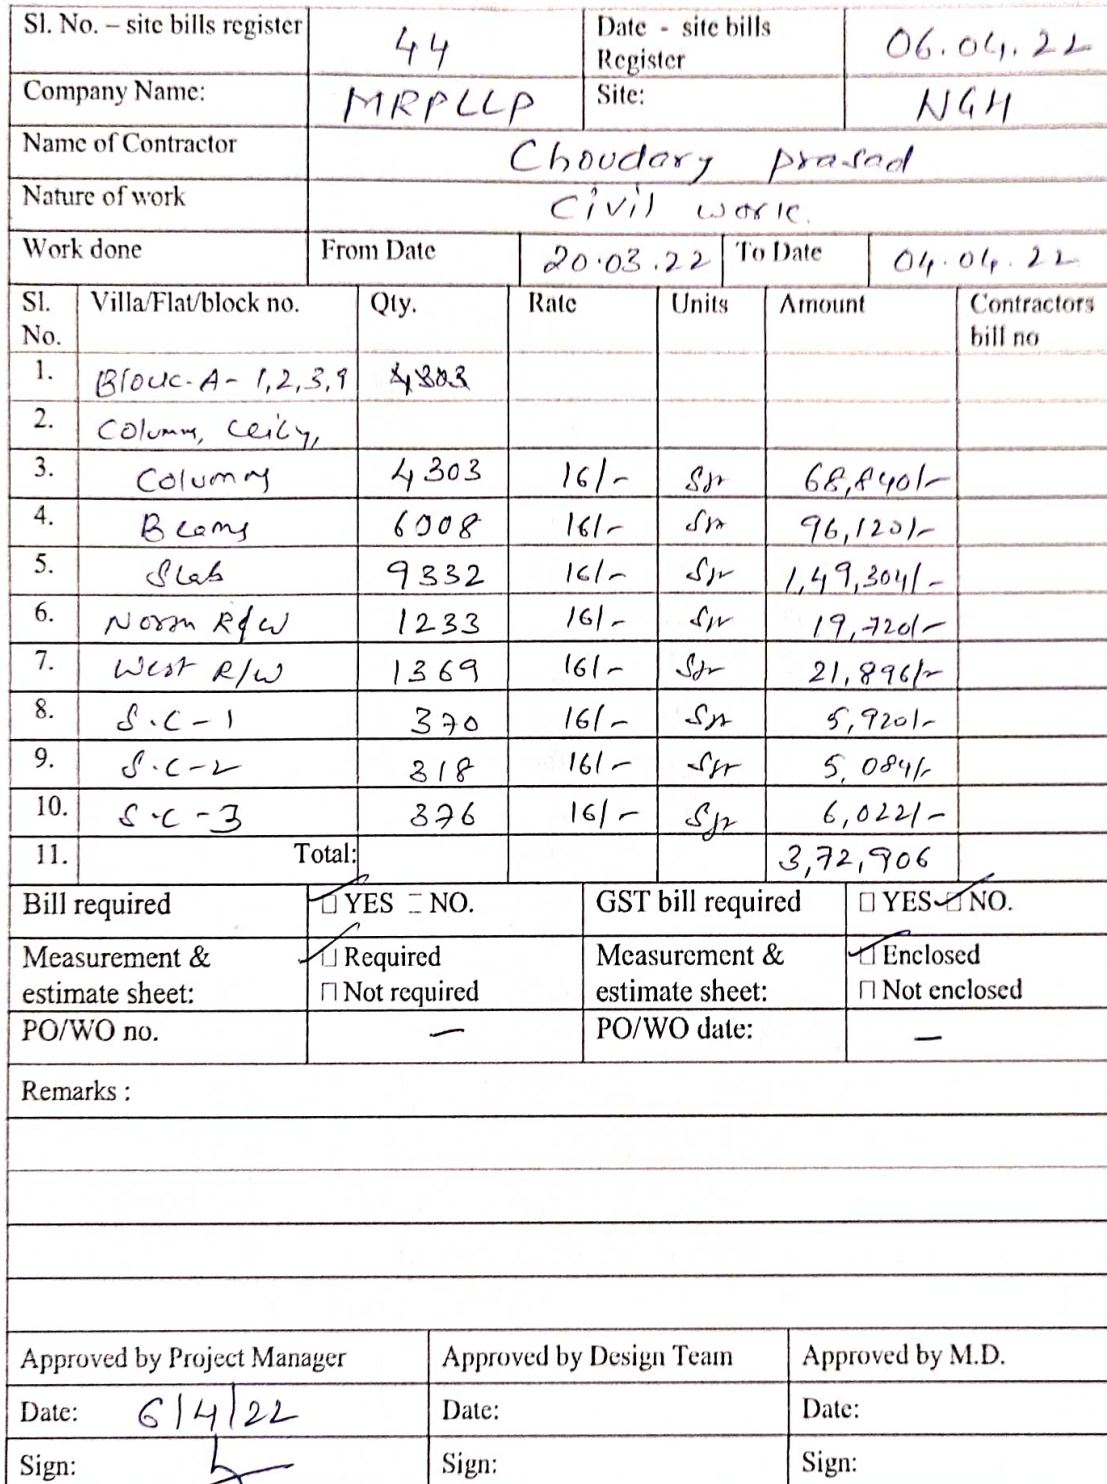 Sl. No. – site bills register 44 Date - site bills Register 06.04.22
Company Name: MRPLLP Site: NGH
Name of Contractor Choudary prasad
Nature of work Civil work.
Work done From Date 20.03.22 To Date 04.04.22
Sl. No. Villa/Flat/block no. Qty. Rate Units Amount Contractors bill no
1. Block-A- 1,2,3,9
2. Column,
3. Columns 4303 16/- Sft 68,840/-
4. Beams 6008 16/- Sft 96,120/-
5. Slab 9332 16/- Sft 1,49,304/-
6. R/W 1233 16/- Sft 19,720/-
7. West R/W 1369 16/- Sft 21,896/-
8. S.C-1 370 16/- Sft 5,920/-
9. S.C-2 318 16/- Sft 5,084/-
10. S.C-3 376 16/- Sft 6,022/-
11. Total: 3,72,906
Bill required YES NO. GST bill required YES NO.
Measurement & estimate sheet: Required Not required Measurement & estimate sheet: Enclosed Not enclosed
PO/WO no. — PO/WO date: —
Remarks :
Approved by Project Manager Approved by Design Team Approved by M.D.
Date: 6/4/22 Date: Date:
Sign: Sign: Sign: